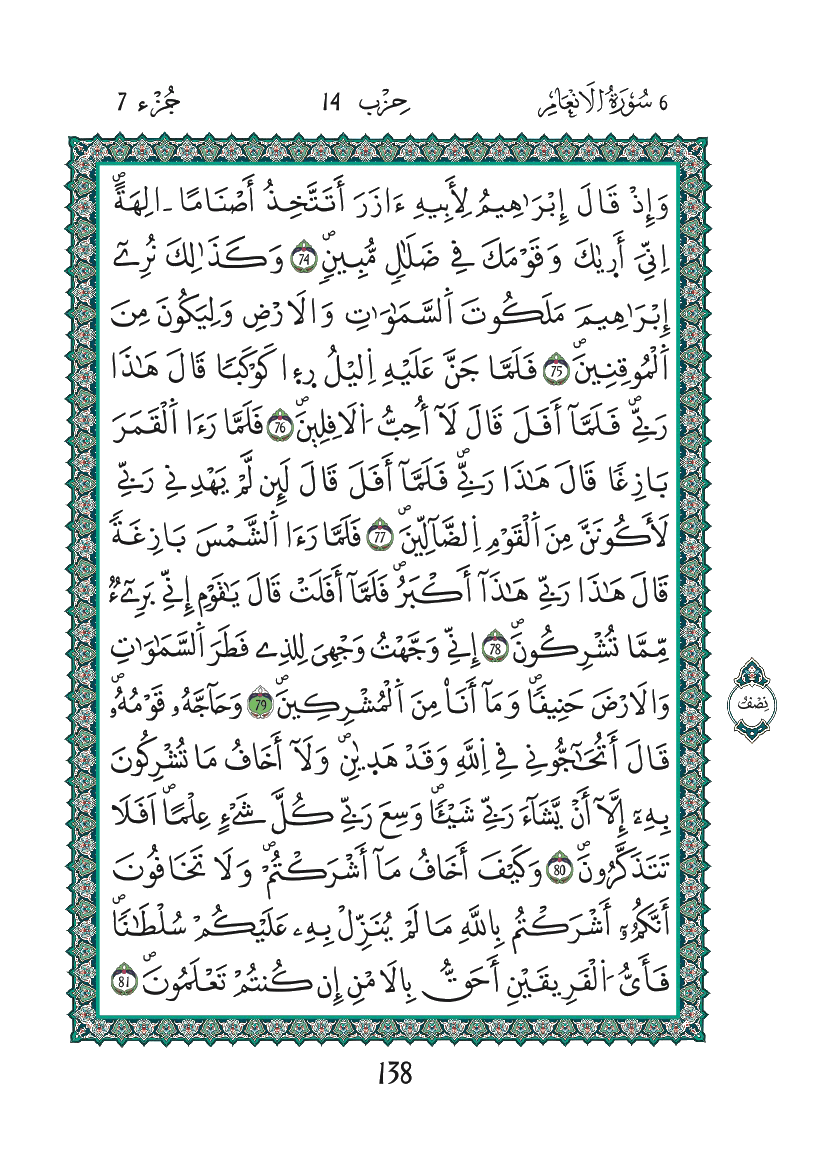 6 سُورَةُ الَانْعَامِ
حِزْب 14
جُزْء 7
وَإِذْ قَالَ إِبْرَٰهِيمُ لِأَبِيهِ ءَازَرَ أَتَتَّخِذُ أَصْنَامًا ـالِهَةًۖ
اِنِّيَ أَر۪يٰكَ وَقَوْمَكَ فِے ضَلَٰلٖ مُّبِينٖۖ 74 وَكَذَٰلِكَ نُرِےٓ
إِبْرَٰهِيمَ مَلَكُوتَ اَ۬لسَّمَٰوَٰتِ وَالَارْضِ وَلِيَكُونَ مِنَ
اَ۬لْمُوقِنِينَۖ 75 فَلَمَّا جَنَّ عَلَيْهِ اِ۬ليْلُ ر۪ء۪ا كَوْكَبٗا قَالَ هَٰذَا
رَبِّےۖ فَلَمَّآ أَفَلَ قَالَ لَآ أُحِبُّ اُ۬لَافِلِينَۖ 76 فَلَمَّا رَءَا اَ۬لْقَمَرَ
بَازِغٗا قَالَ هَٰذَا رَبِّےۖ فَلَمَّآ أَفَلَ قَالَ لَئِن لَّمْ يَهْدِنِے رَبِّے
لَأَكُونَنَّ مِنَ اَ۬لْقَوْمِ اِ۬لضَّآلِّينَۖ 77 فَلَمَّا رَءَا اَ۬لشَّمْسَ بَازِغَةٗ
قَالَ هَٰذَا رَبِّے هَٰذَآ أَكْبَرُۖ فَلَمَّآ أَفَلَتْ قَالَ يَٰقَوْمِ إِنِّے بَرِےٓءٞ
مِّمَّا تُشْرِكُونَۖ 78 إِنِّے وَجَّهْتُ وَجْهِيَ لِلذِے فَطَرَ اَ۬لسَّمَٰوَٰتِ
وَالَارْضَ حَنِيفٗاۖ وَمَآ أَنَا۠ مِنَ اَ۬لْمُشْرِكِينَۖ 79 وَحَآجَّهُۥ قَوْمُهُۥ
نِصْفُ
قَالَ أَتُحَٰٓجُّونِے فِے اِ۬للَّهِ وَقَدْ هَد۪يٰنِۖ وَلَآ أَخَافُ مَا تُشْرِكُونَ
بِهِۦٓ إِلَّآ أَنْ يَّشَآءَ رَبِّے شَيْـٔٗاۖ وَسِعَ رَبِّے كُلَّ شَےْءٍ عِلْماًۖ اَفَلَا
تَتَذَكَّرُونَۖ 80 وَكَيْفَ أَخَافُ مَآ أَشْرَكْتُمْۖ وَلَا تَخَافُونَ
أَنَّكُمُۥٓ أَشْرَكْتُم بِاللَّهِ مَا لَمْ يُنَزِّلْ بِهِۦ عَلَيْكُمْ سُلْطَٰنٗاۖ
فَأَيُّ اُ۬لْفَرِيقَيْنِ أَحَقُّ بِالَامْنِ إِن كُنتُمْ تَعْلَمُونَۖ 81
138